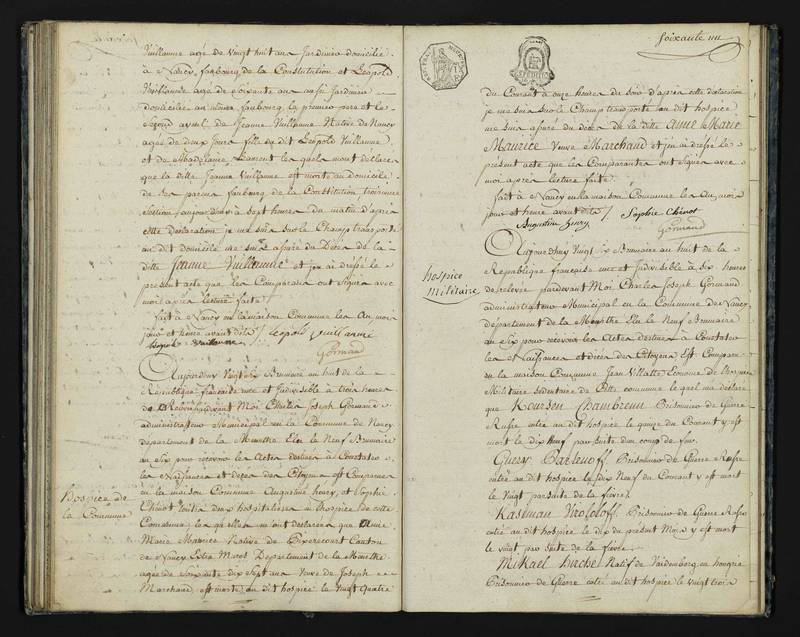 Vuillaume agé de vingt huit ans Jardinier domicilié
à Nancy faubourg de la Constitution et Léopold
Vuillaume agé de soixante ans aussi Jardinier
domicilié au même faubourg, le premier pere et le
Second ayeul de Jeanne Vuillaume Native de Nancy
agée de deux Jours fille du dit Léopold Vuillaume
et de Magdelaine Laurent lesquels m'ont déclaré
que la ditte Jeanne Vuillaume est morte au domicile
de ses parens faubourg de la Constitution troisieme
Section aujourd'huy à sept heures du matin d'apres
cette déclaration je me suis sur le Champ transporté
au dit domicile me suis assuré du Décès de la
ditte Jeanne Vuillaume et j'en ai dressé le
present acte que les Comparans ont Signés avec
moi après lecture faite
fait à Nancy en la maison Commune les An, mois
jour et heure avant dits / Léopold Vuillaume
Léopold Vuillaume
Gormand
Aujourd'huy Vingt Six Brumaire an huit de la
République française une et Indivisible à trois heures
de Relevée pardevant Moi Charles Joseph Gormand
administrateur Municipal en la Commune de Nancy
département de la Meurthe Elu le Neuf Brumaire
an Six pour recevoir les Actes destinés à Constater
les Naissances et décès des Citoyens est Comparu
en la maison Commune Augustine henry, et Sophie
hospice de
la Commune
Commune, lesquelles m'ont déclarées que Anne
Marie Maurice Native de Pixerecourt Canton
de Nancy Extra Muros Département de la Meurthe
agée de Soixante dix Sept ans Veuve de Joseph
Marchand, est morte au dit hospice le vingt quatre
soixante
du Courant à onze heures du soir d'après cette declaration
je me suis sur le Champ transporté au dit hospice
me suis assuré du décès de la ditte Anne Marie
Maurice Veuve Marchand et j'en ai dressé le
présent acte que les Comparantes ont signés avec
moi après lecture faite.
fait à Nancy en la maison Commune les An, mois
jour et heure avant dits / Sophie Chénot
Augustine henry
Gormand
Aujourd'huy Vingt Six Brumaire an huit de la
hospice
Militaire
République française une et Indivisible à Six heures
de relevée pardevant Moi Charles Joseph Gormand
administrateur Municipal en la Commune de Nancy,
département de la Meurthe Elu le Neuf Brumaire
an Six pour recevoir les Actes destinés à Constater
les Naissances et décès des Citoyens Est Comparu
en la maison Commune Jean Villatte Econome de l'hospice
Militaire sédentaire de Cette Commune lequel m'a déclaré
que Kourson Chambrenn Prisonnier de Guerre
Russe entré au dit hospice le quinze du Courant y est
mort le dix Neuf par suite d'un coup de feu.
Guery Barlenoff Prisonnier de Guerre Russe
entré au dit hospice le dix Neuf du Courant y est mort
le Vingt par suite de la fièvre
Kasiman Wrololoff Prisonnier de Guerre Russe
entré au dit hospice le dix du présent Mois y est mort
le vingt par suite de la fièvre
Mikael hirchel Natif de Vaidenborg en hongrie
Prisonnier de Guerre entré au dit hospice le vingt trois